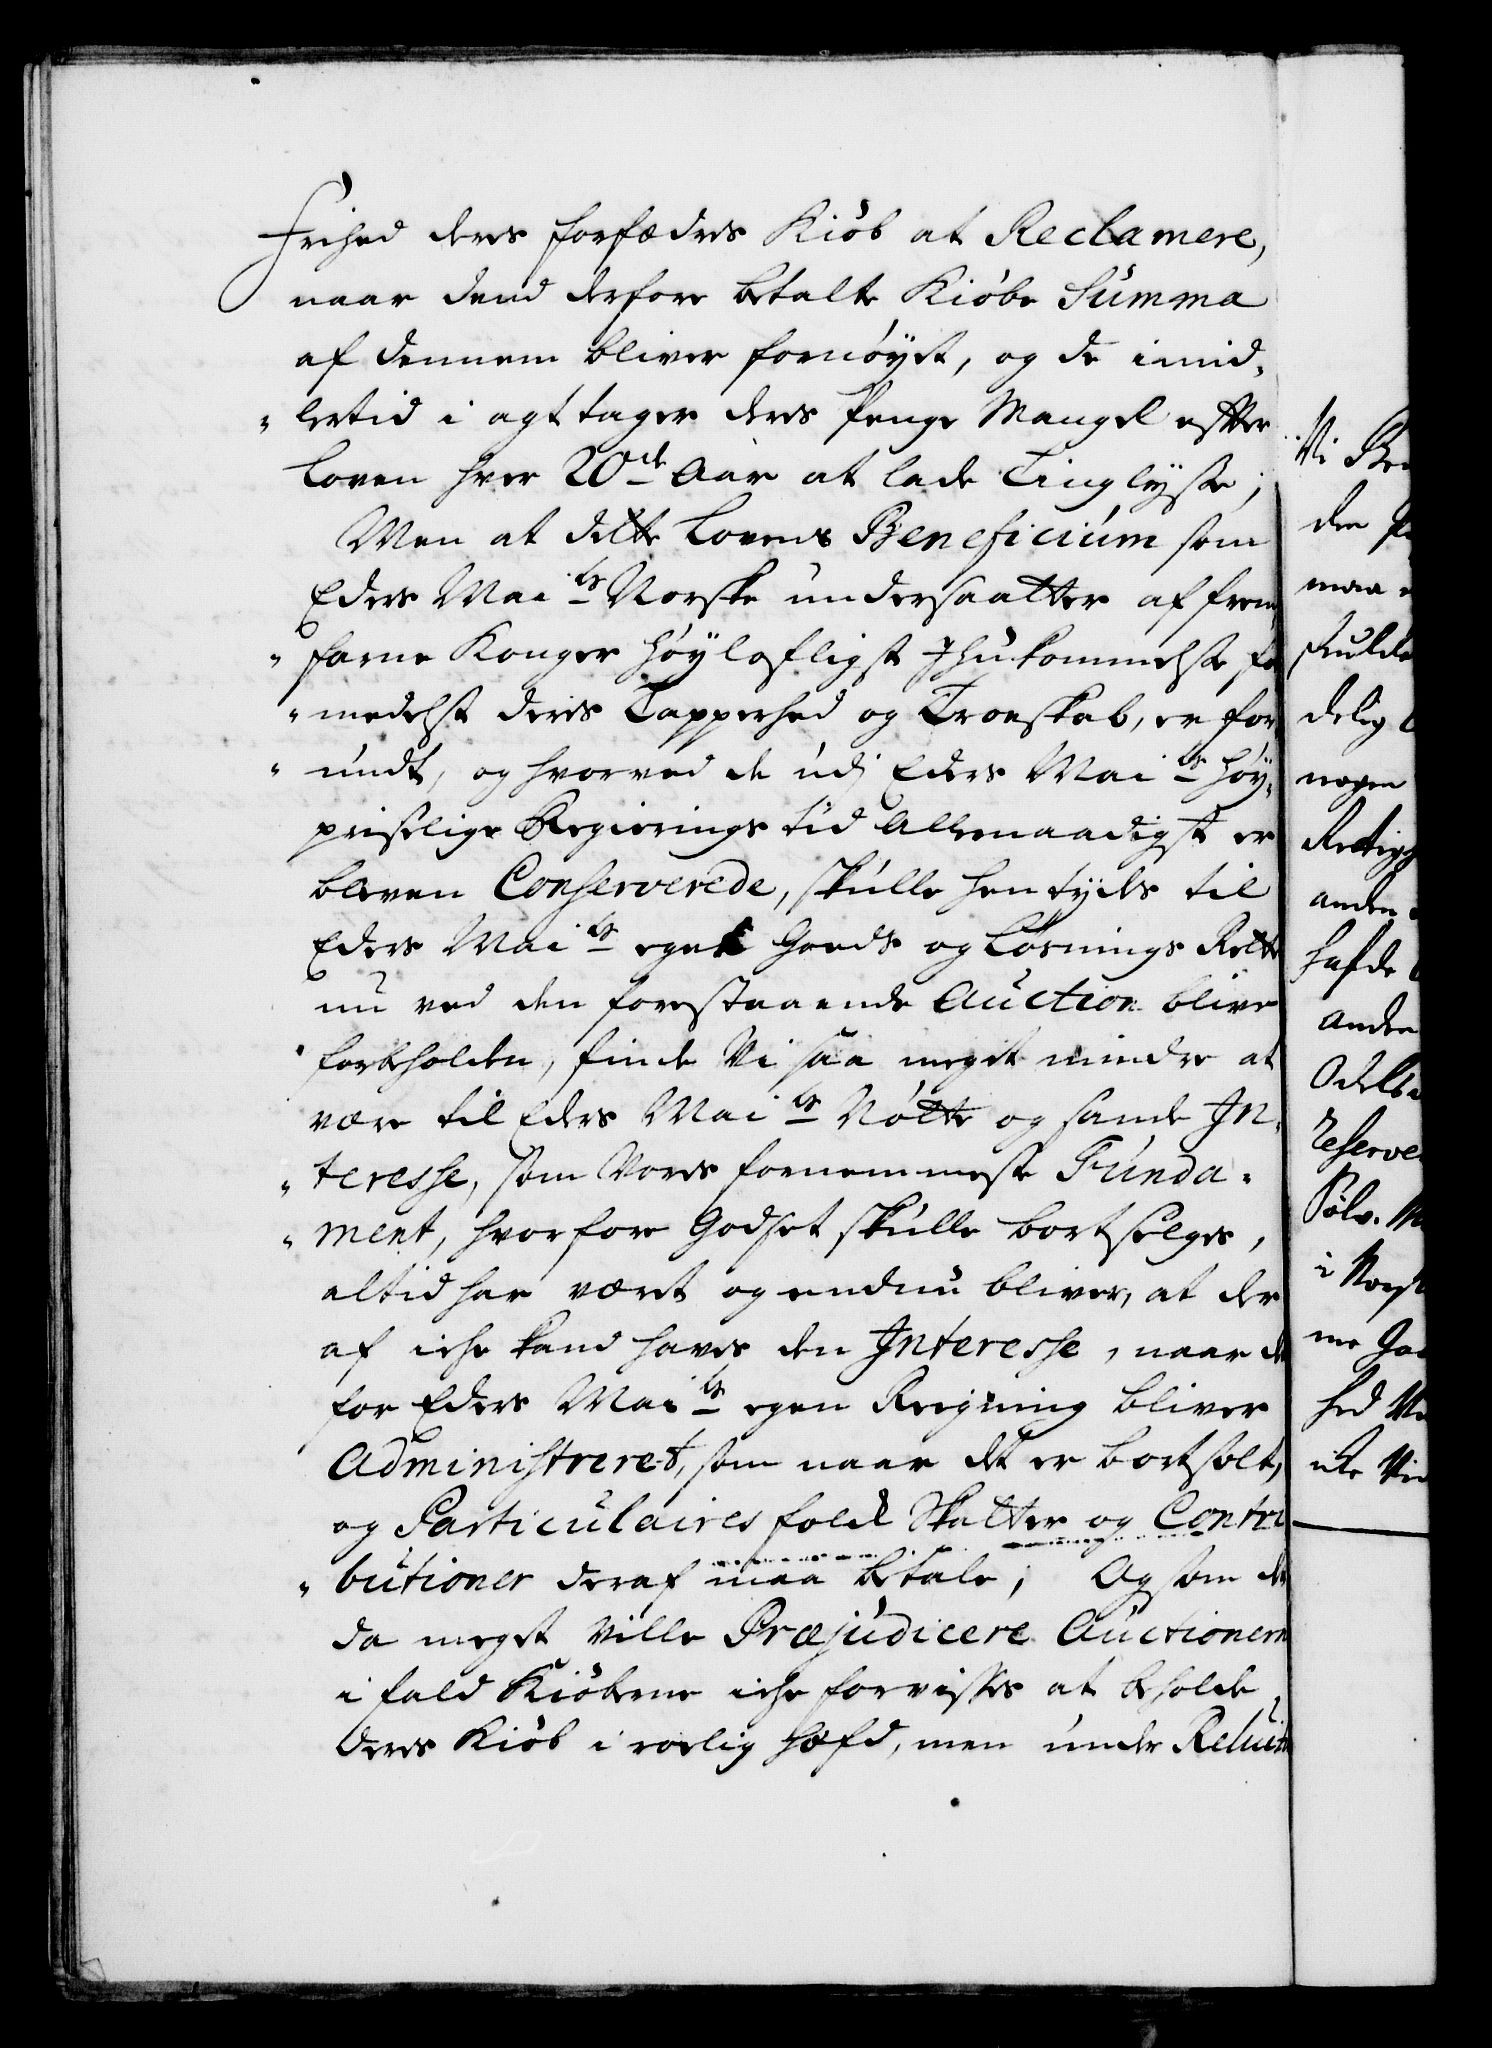 Frihed deres forfædres Kiöb at Reclamere,
naar dend derfore betalte Kiöbe Summa
af dennem bliver fornöyet, og de imid„
„ lertid i agt tager deres Penge Mangel efter
Loven hver 20de Aar at lade Tinglyse;
Men at dette Lovens Beneficium som
Eders Maits Norske undersaatter af frem
„ farne Konger höylofligst Ihukommelse, for
„ medelst deris Tapperhed og Troeskab, er for„
„ undt, og hvorved de udj Eders Maits Höy„
priselige Regierings tid Allernaadigst er
bleven Conserverede, skulle hentydes til
Eders Maits eget Goeds og Lösnings Rette
nu ved den forestaaende Auction blive
forbeholden, finde Vi saa meget mindre at
være til Eders Maits Nötte og sande In„
„ teresse, som Vores fornemmeste Funda„
„ ment, hvorfore Godset skulle bortselges,
altid har været og endnu bliver, at der
af iche kand haves den Interesse, naar det
for Eders Maits egen Regning bliver
Administreret, som naar det er bortsolt,
og Particulaires folck Skatter og Contri
„ butioner deraf maa betale; Og som det
da meget ville Præjudicere Auctionern
i fald Kiöberne iche forvisses at beholde
deres Kiöb i roelig Hæfd, men under Reluit
Vi
den
maa
skulde
delig
nogen
Rettigh
anden
hafde
anden
Odels
reserve
Sölv. M
i Norsk
me
hed
iche